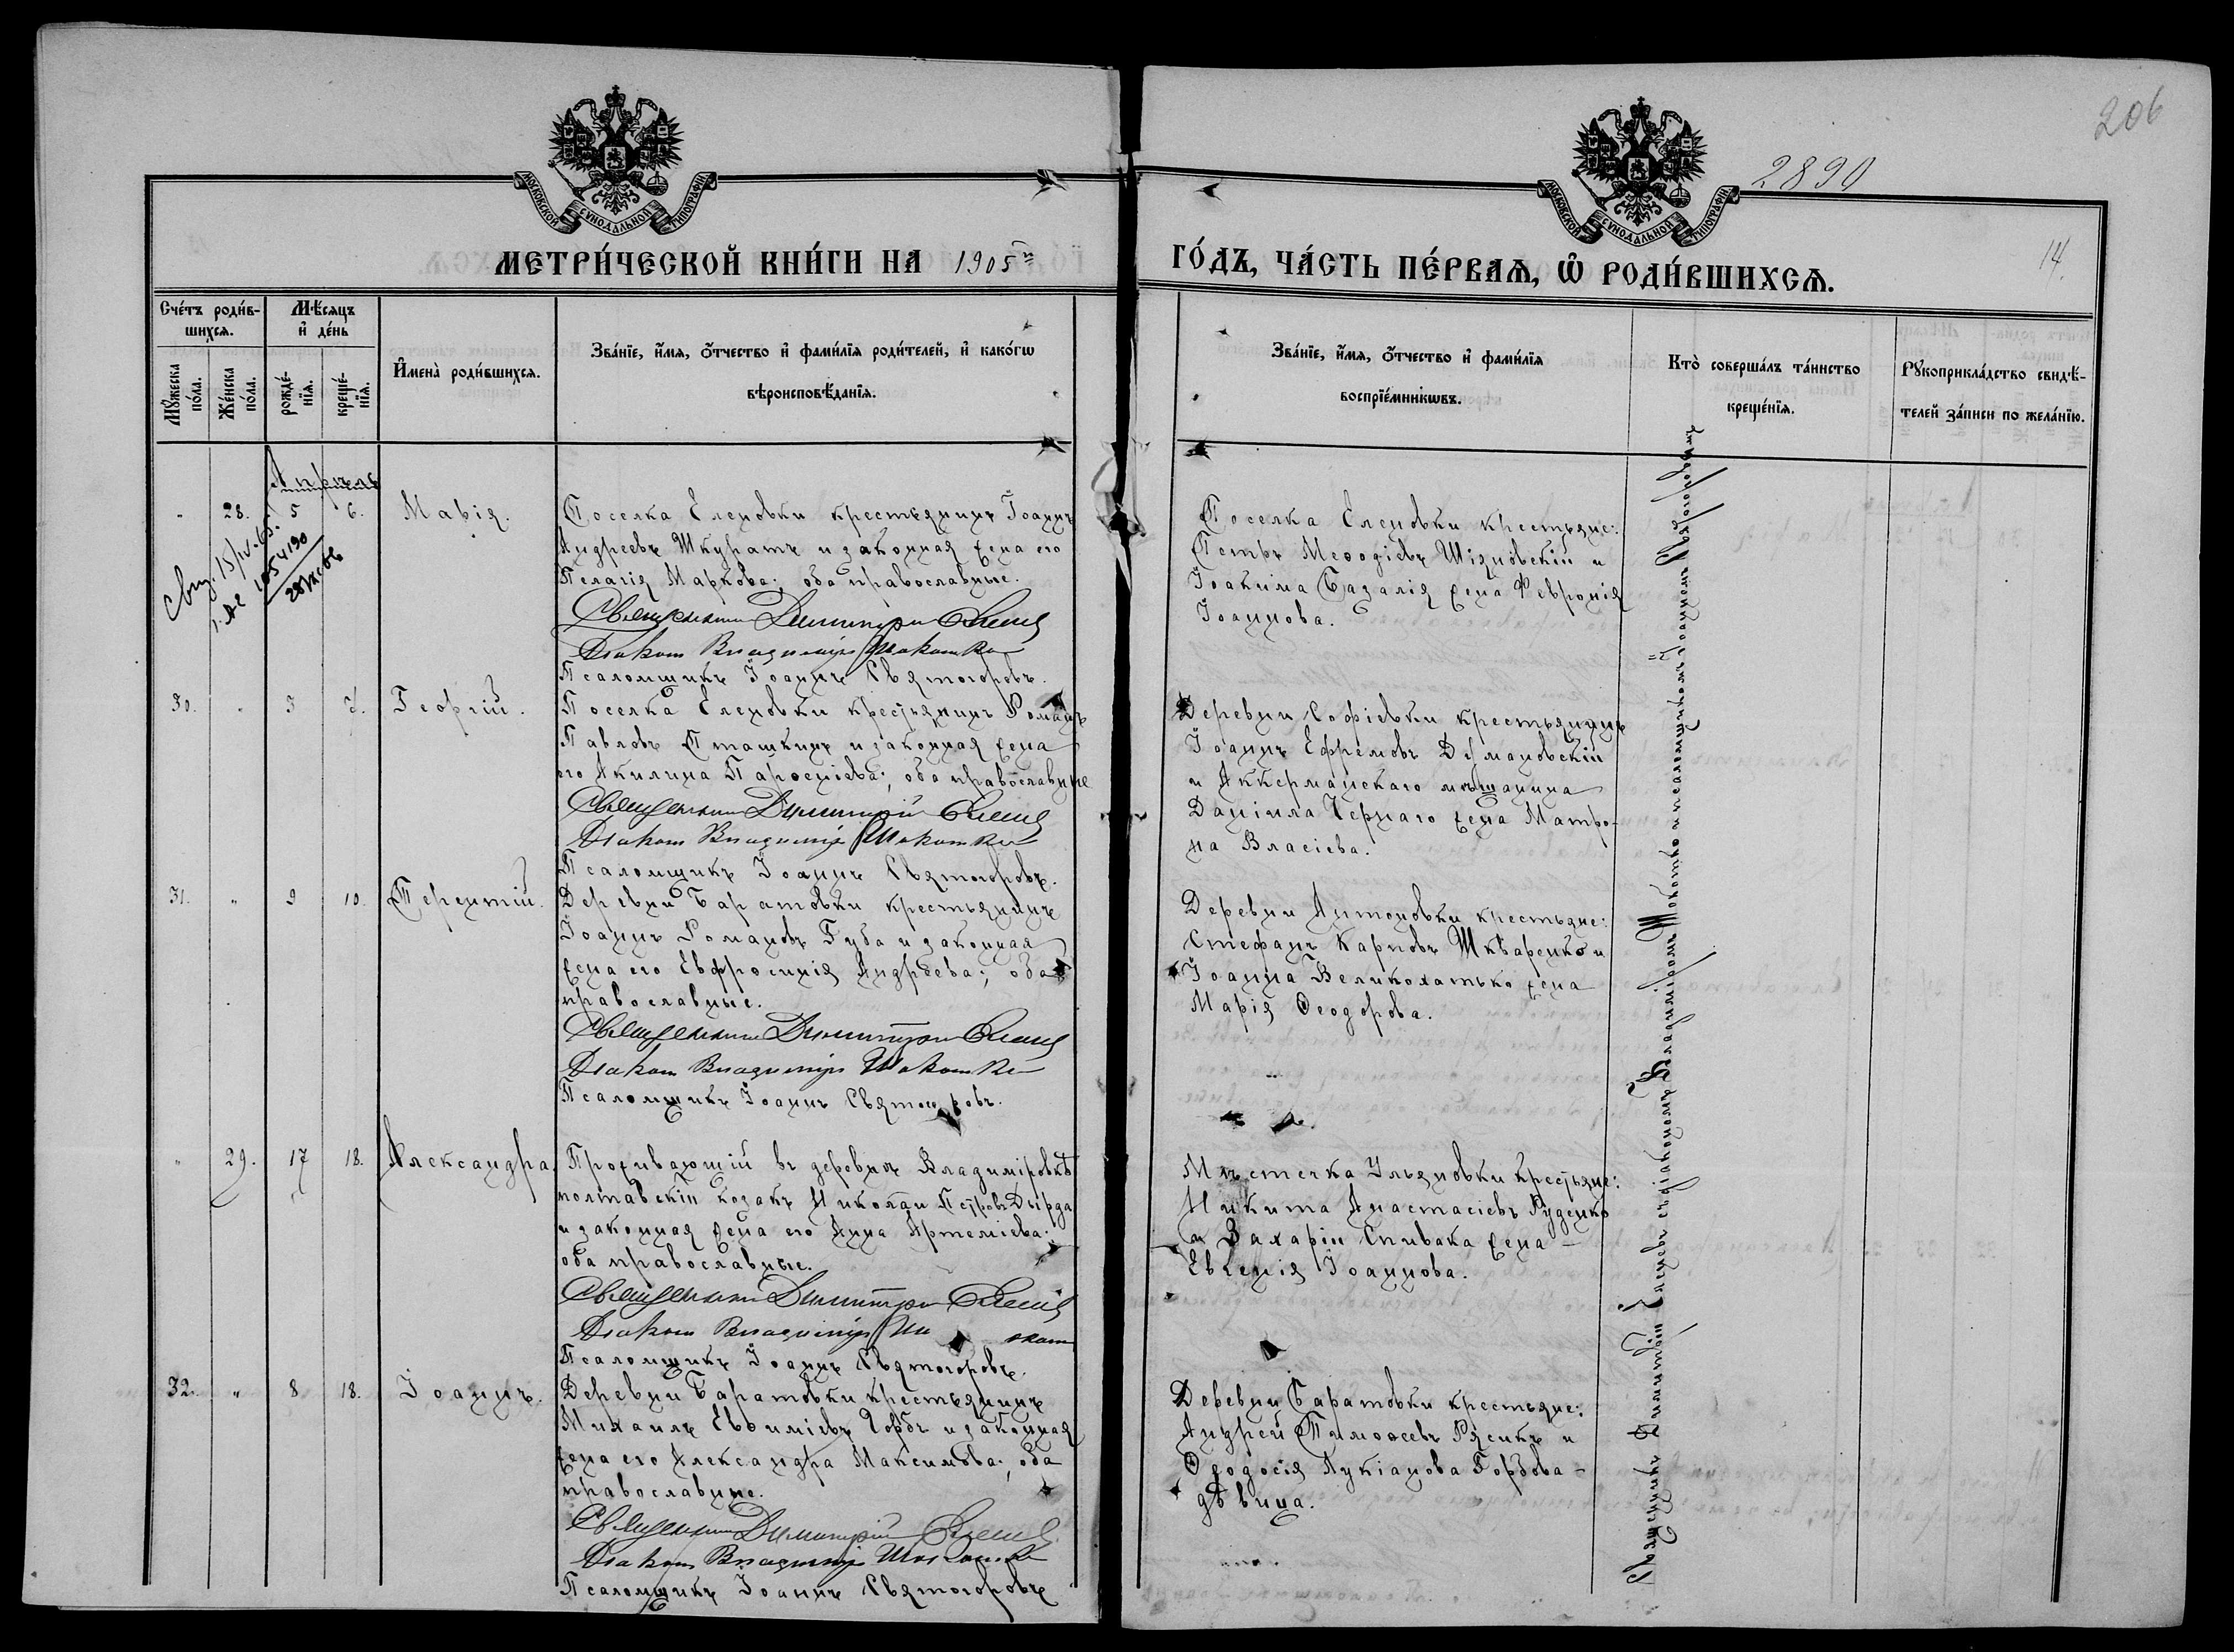 206
2890
14.
МОСКОВСКОЙ СѴНОДАЛЬНОЙ ТИПОГРАФІИ
МОСКОВСКОЙ СѴНОДАЛЬНОЙ ТИПОГРАФІИ
МЕТРИ́ЧЕСКОЙ КНИ́ГИ НА 1905й
ГО́ДЪ, ЧА́СТЬ ПЕ́РВАѦ, Ѡ҆ РОДИ́ВШИХСѦ.
Сче́тъ роди́в-
шихсѧ.
Мꙋ́жеска по́ла.
Же́нска по́ла.
Мѣ́сяцъ
и҆ де́нь
рожде́-
нїѧ.
креще́-
нїѧ.
И҆мена̀ роди́вшихсѧ.
Зва́нїе, и҆́мѧ, ѻ҆́тчество и҆ фами́лїѧ роди́телей, и҆ како́гѡ
вѣроисповѣ́данїѧ.
Зва́нїе, и҆́мѧ, ѻ҆́тчество и҆ фами́лїѧ
воспрїе́мникѡвъ.
Кто̀ соверша́лъ та́инство
креще́нїѧ.
Рꙋкоприкла́дство свидѣ́-
телей за́писи по жела́нїю.
Апрѣль
" 28. 5 6. Марія.
Поселка Еленовки крестьянинъ Іоаннъ
Андреевъ Шкуратъ и законная жена его
Пелагія Маркова; оба православные.
Священникъ Димитрій
Діаконъ Владиміръ Шокотко
Псаломщикъ Іоаннъ Святогоровъ.
Поселка Еленовки крестьяне:
Петръ Меѳодіевъ Шіяновскій и
Іоакима Базалія жена Февронія
Іоаннова.
30. " 3 7. Георгій.
Поселка Еленовки крестьянинъ Романъ
Павловъ Пташкинъ и законная жена
его Акилина Парѳеніева; оба православные
Священникъ Димитрій
Діаконъ Владиміръ Шокотко
Псаломщикъ Іоаннъ Святогоровъ.
Деревни Софіевки крестьянинъ
Іоаннъ Ефремовъ Дѵмановскій
и Аккерманскаго мѣщанина
Даніила Чернаго жена Матро-
на Власіева.
31. " 9 10. Терентій.
Деревни Баратовки крестьянинъ
Іоаннъ Романовъ Губа и законная
жена его Евфросинія Андреева; оба
православные.
Священникъ Димитрій
Діаконъ Владиміръ Шокотко
Псаломщикъ Іоаннъ Святогоровъ.
Деревни Антоновки крестьяне:
Стефанъ Карповъ Шкваренко и
Іоанна Великохатько жена
Марія Ѳеодорова.
" 29. 17 18. Александра.
Проживающій въ деревнѣ Владиміровкѣ
полтавскій козакъ Николай Петровъ Дырда
и законная жена его Анна Артеміева;
оба православные.
Священникъ Димитрій
Діаконъ Владиміръ
Псаломщикъ Іоаннъ Святогоровъ.
Мѣстечка Ульяновки крестьяне:
Никита Анастасіевъ Руденко
и Захаріи Спивака жена -
Евгенія Іоаннова.
32. " 8 18. Іоаннъ.
Деревни Баратовки крестьянинъ
Михаилъ Евѳиміевъ Горбъ и законная
жена его Александра Максимова; оба
православные.
Священникъ Димитрій
Діаконъ Владиміръ Шокотко
Псаломщикъ Іоаннъ Святогоровъ
Деревни Баратовки крестьяне:
Андрей Тимоѳеевъ Рясикъ и
Ѳеодосія Лукіанова Горбова -
дѣвица.
Священникъ Димитрій Еленевъ съ діакономъ Владиміромъ Шокотко и псаломщикомъ Іоанномъ Святогоровымъ